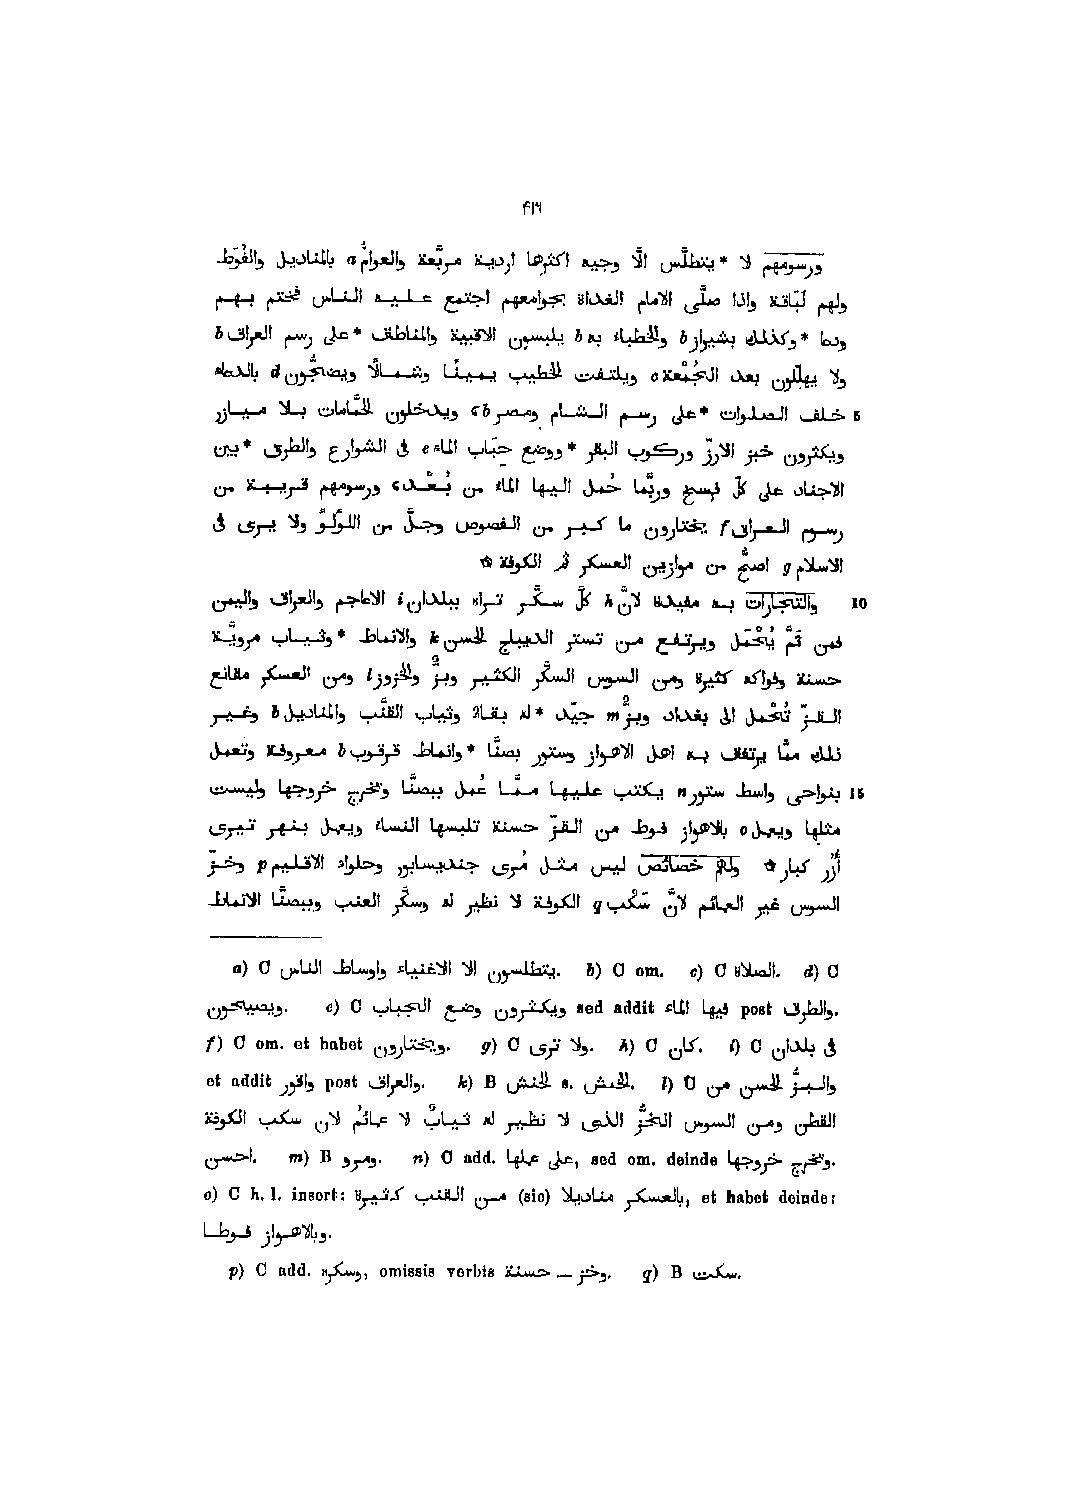 ٤١٦
ورسومهم لا *يتطلّس الّا وجيه اكثرها اردية مربّعة والعوامُّ a بالمناديل والفُوَط
ولهم لَبّاقة واذا صلّى الامام الغداة بجوامعهم اجتمع عليه الناس فختم بهم
ودعا *وكذلك بشيراز b والخطباء به b يلبسون الاقبية والمناطف *على رسم العراق b
ولا يهلّلون بعد الجُمْعة c ويلتفت الخطيب يمينًا وشمالًا ويضجّون d بالدعاء
5 خلف الصلوات *على رسم الشام ومصر b c ويدخلون الحمّامات بلا ميازر
ويكثرون خبز الارزّ وركوب البقر *ووضع حِبَاب الماء e فى الشوارع والطرق *بين
الاجناد على كلّ فرسخ وربّما حُمل اليها الماء من بُعْد c ورسومهم قريبة من
رسوم العراق f يختارون ما كبر من الفصوص وجلّ من اللؤلؤ ولا يرى فى
الاسلام g اصحّ من موازين العسكر ثم الكوفة ۞
10 والتجارات به مفيدة لانّ h كلّ سكّر تراه ببلدان i الاعاجم والعراق واليمن
فمن ثَمَّ يُحْمَل ويرتفع من تستر الديباج الحسن k والانماط *وثياب مرويّة
حسنة وفواكه كثيرة ومن السوس السكّر الكثير وبزّ والخزوز l ومن العسكر مقانع
القزّ تُحْمل الى بغداد وبزّ m جيّد *له بقاء وثياب القنّب والمناديل b وغير
ذلك ممّا يرتفق به اهل الاهواز وستور بصنّا *وانماط قرقوب b معروفة وتعمل
15 بنواحى واسط ستور n يكتب عليها ممّا عُمل ببصنّا وتخرج خروجها وليست
مثلها ويعمل o بالاهواز فوط من القزّ حسنة تلبسها النساء ويعمل بنهر تيرى
أُزر كبار ۞ ولهم خصائص ليس مثل مُرى جنديسابور وحلواء الاقليم p وخزّ
السوس غير العمائم لانّ سَكْب q الكوفة لا نظير له وسكّر العنب وببصنّا الانماط
a) C يتطلسون الا الاغنياء واوساط الناس. b) C om. c) C الصلاة. d) C
ويصيحون. e) C ويكثرون وضع الحباب sed addit فيها الماء post والطرق.
f) C om. et habet ويختارون. g) C ولا ترى. h) C كان. i) C فى بلدان
et addit واقور post والعراق. k) B الخنش s. الحنش. l) C والبزّ الحسن من
القطن ومن السوس الخزّ الذى لا نظير له ثيابٌ لا عمائم لان سكب الكوفة
احسن. m) B ومرو. n) C add. على عملها, sed om. deinde وتخرج خروجها.
o) C h. l. insert: بالعسكر مناديلا (sic) من القنب كثيرة, et habet deinde:
وبالاهواز فوطا.
p) C add. وسكره, omissis verbis وخز — حسنة. q) B سكت.